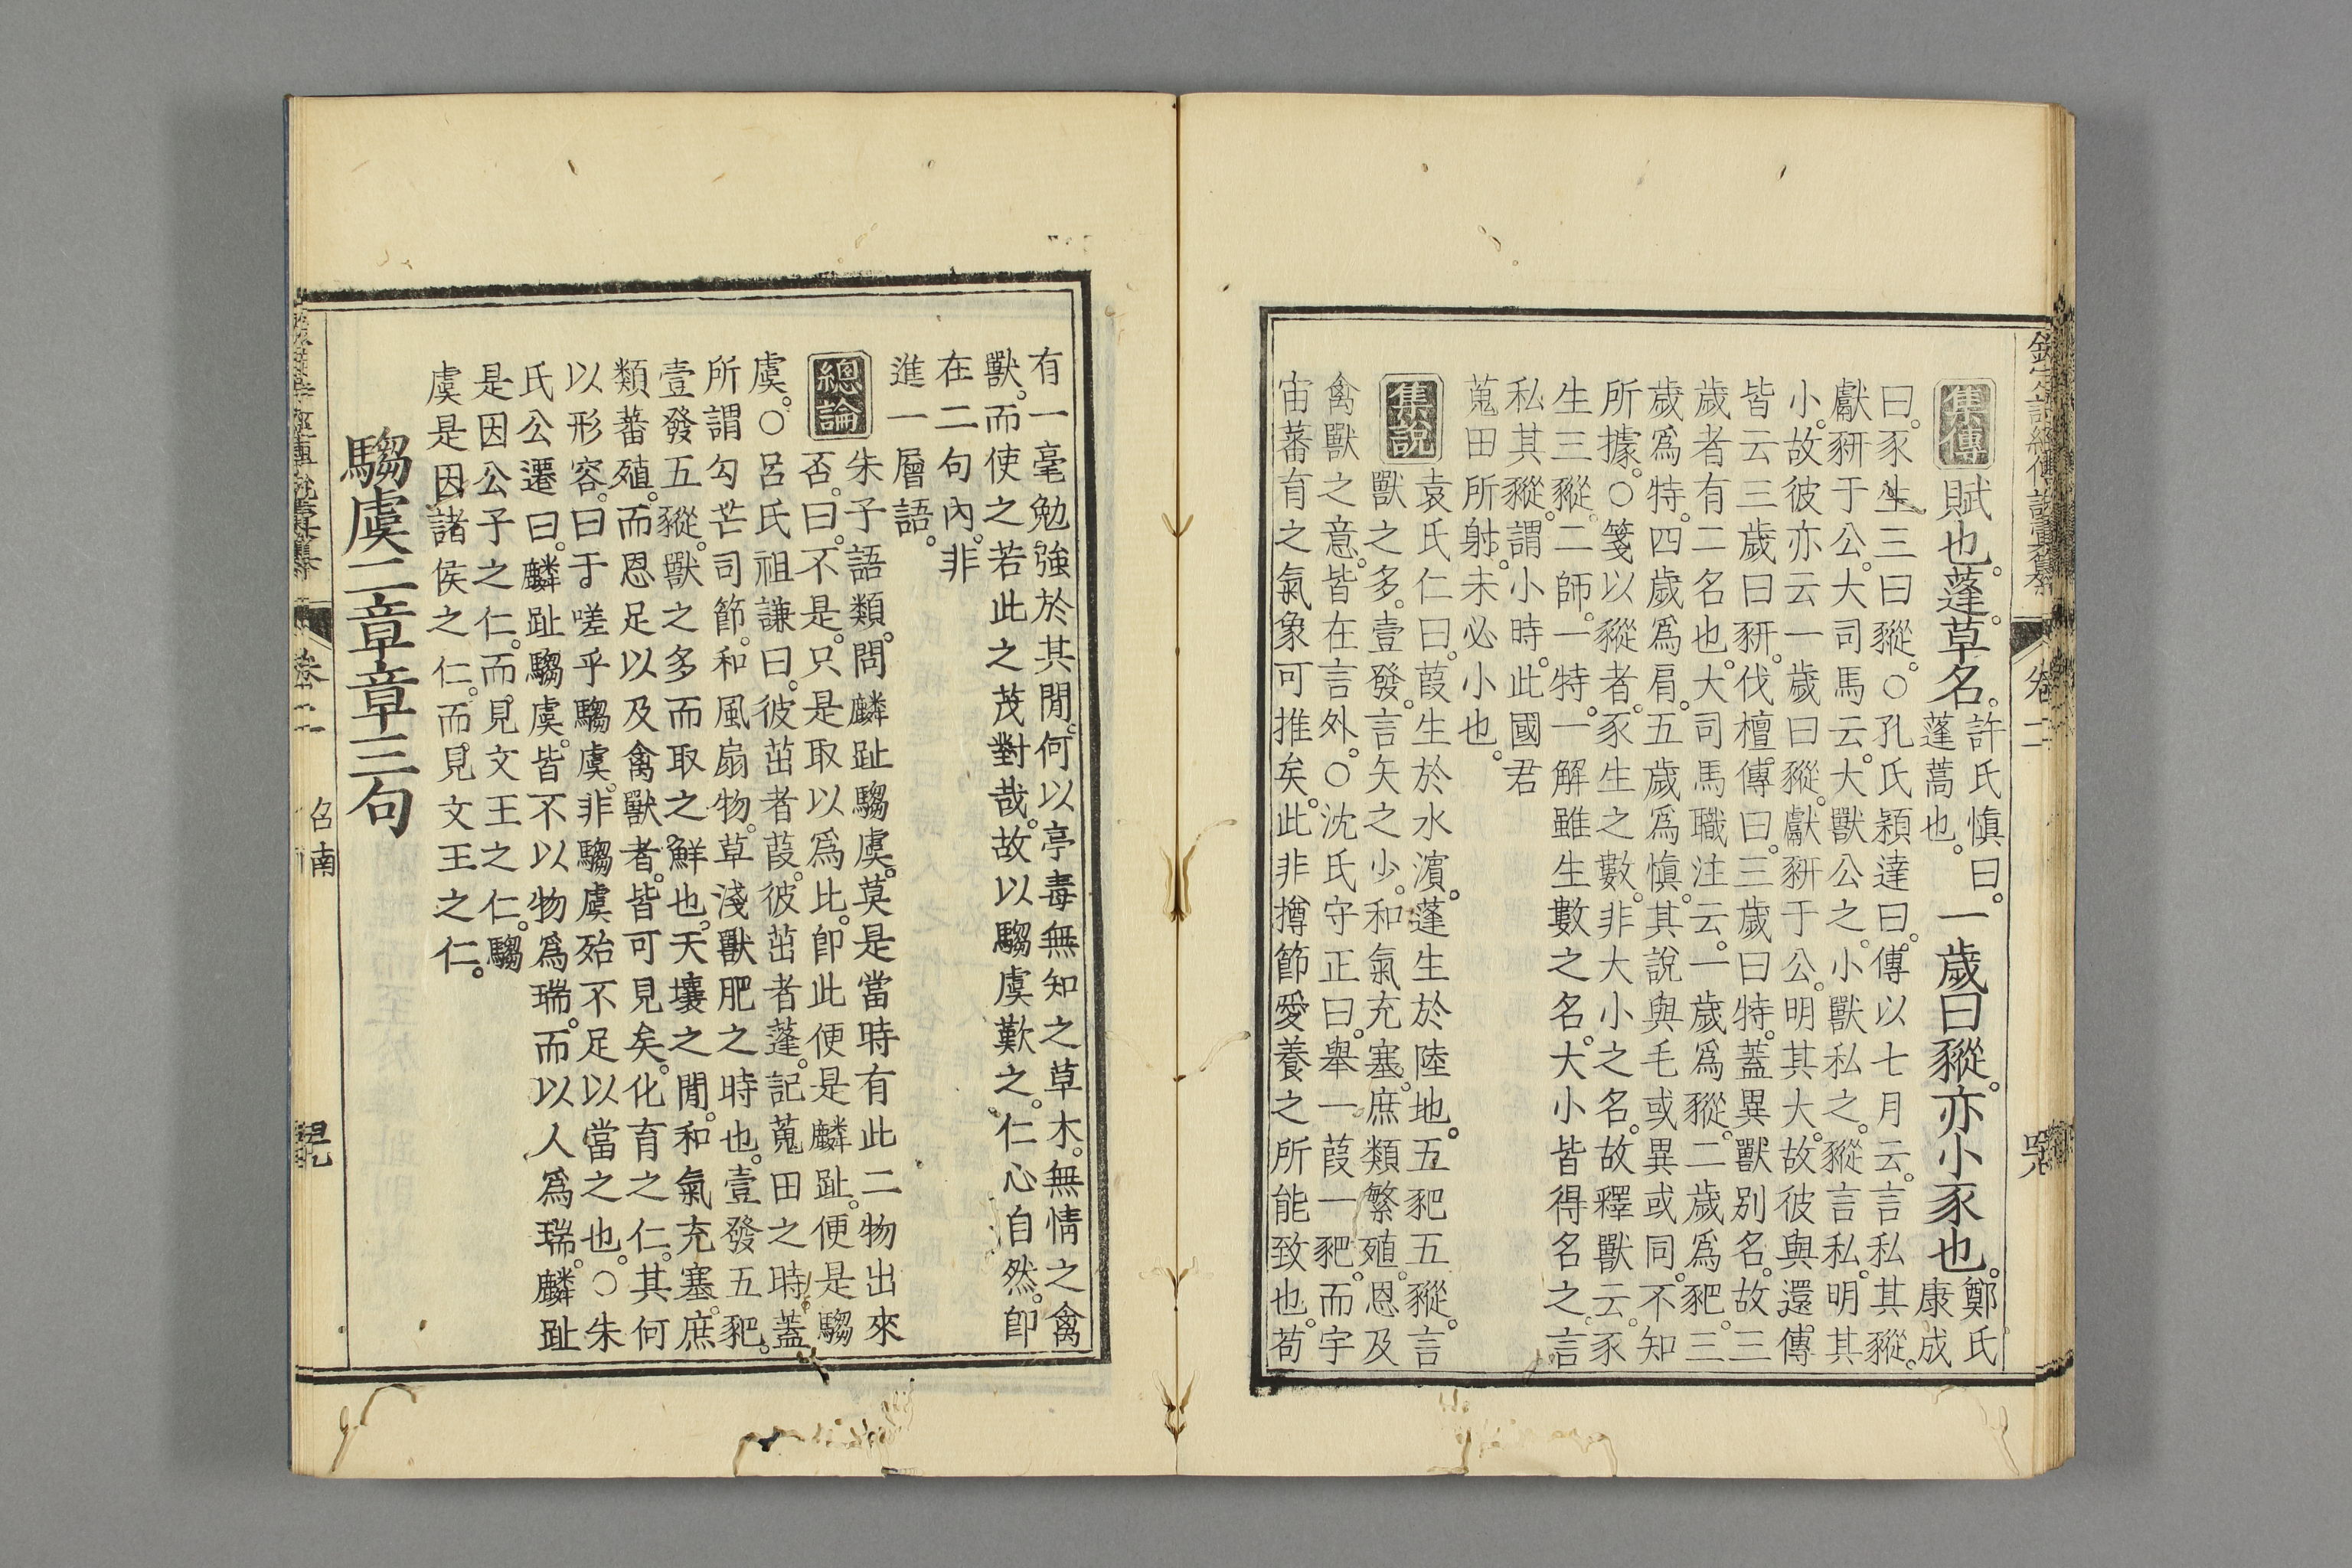 欽定詩經傳說彙纂 卷二
集傳 賦也。蓬。草名。許氏愼曰。蓬蒿也。一歲曰豵。亦小豕也。鄭氏康成
曰。豕生三曰豵。○孔氏穎達曰。傳以七月云。言私其豵。
獻豜于公。大司馬云。大獸公之。小獸私之。豵言私。明其
小。故彼亦云一歲曰豵。獻豜于公。明其大。故彼與還傳
皆云三歲曰豜。伐檀傳曰。三歲曰特。蓋異獸別名。故三
歲者有二名也。大司馬職注云。一歲爲豵。二歲爲豝。三
歲爲特。四歲爲肩。五歲爲愼。其說與毛或異或同。不知
所據。○箋以豵者。豕生之數。非大小之名。故釋獸云。豕
生三豵。二師。一特。一解雖生數之名。大小皆得名之。言
私其豵。謂小時。此國君
蒐田所射。未必小也。
集說 袁氏仁曰。葭生於水濱。蓬生於陸地。五豝五豵。言
獸之多。壹發。言矢之少。和氣充塞。庶類繁殖。恩及
禽獸之意。皆在言外。○沈氏守正曰。舉一葭一豝。而宇
宙蕃有之氣象可推矣。此非撙節愛養之所能致也。苟
有一毫勉強於其閒。何以亭毒無知之草木。無情之禽
獸。而使之若此之茂對哉。故以騶虞歎之。仁心自然。卽
在二句內。非
進一層語。
總論 朱子語類。問麟趾騶虞。莫是當時有此二物出來
否。曰。不是。只是取以爲比。卽此便是麟趾。便是騶
虞。○呂氏祖謙曰。彼茁者葭。彼茁者蓬。記蒐田之時。蓋
所謂勾芒司節。和風扇物。草淺獸肥之時也。壹發五豝。
壹發五豵。獸之多而取之鮮也。天壤之閒。和氣充塞。庶
類蕃殖。而恩足以及禽獸者。皆可見矣。化育之仁。其何
以形容。曰于嗟乎騶虞。非騶虞殆不足以當之也。○朱
氏公遷曰。麟趾騶虞。皆不以物爲瑞。而以人爲瑞。麟趾
是因公子之仁。而見文王之仁。騶
虞是因諸侯之仁。而見文王之仁。
騶虞二章章三句
卷二 召南